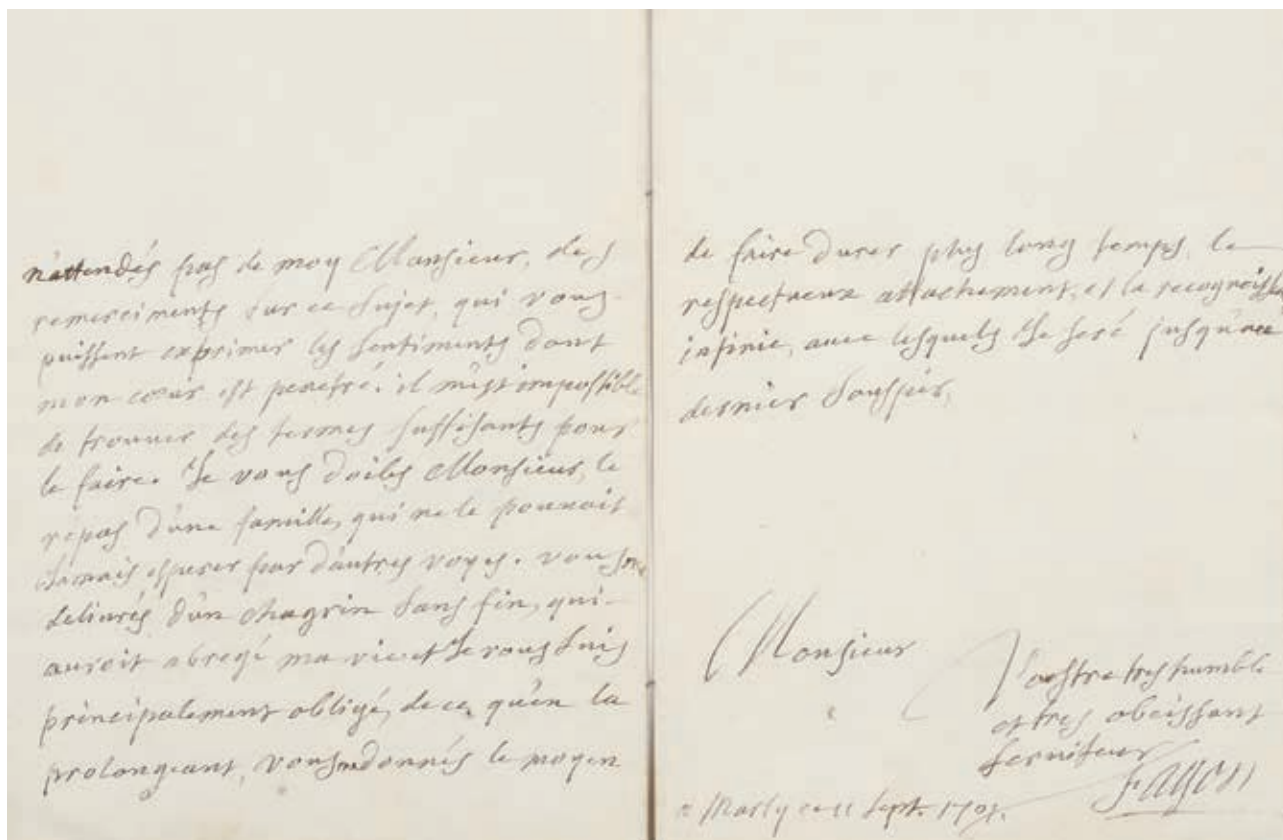 n'attendés pas de moy Monsieur, des
remerciments sur ce sujet, qui vous
puissent exprimer les sentiments dont
mon cœur est penetré. il m'est impossible
de trouuer des termes suffisants pour
le faire. Je vous doibs Monsieur, le
repos d'une famille, qui ne le pouuoit
Jamais esperer par d'autres voyes. vous me
deliurés d'un chagrin sans fin, qui
auroit abregé ma vie et Je vous suis
principalement obligé, de ce qu'en la
prolongeant, vous me donnés le moyen
de faire durer plus long temps, le
respectueux attachement, et la recognoissance
infinie, auec lesquels Je seré jusqu'au
dernier souspir,
Monsieur
Vostre tres humble
et tres obeissant
seruiteur
Fagon
a Marly ce 11 Sept.